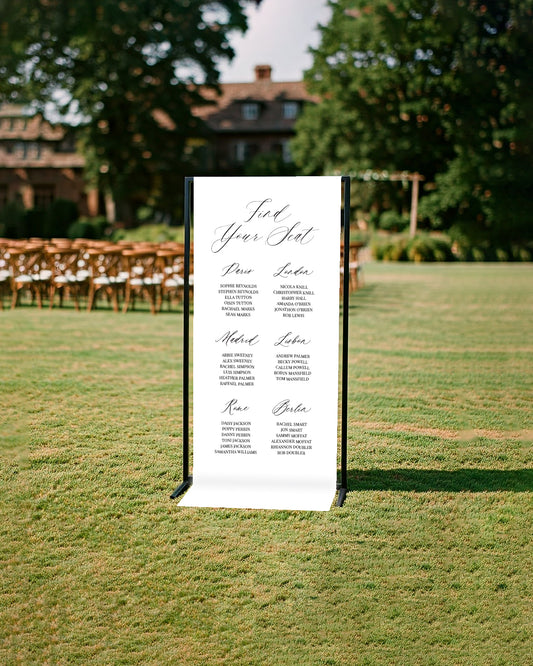 Find
Your Seat
Paris
SOPHIE REYNOLDS
STEPHEN REYNOLDS
ELLA TUTTON
OISIN TUTTON
RACHAEL MARKS
SEAN MARKS
London
NICOLA KNILL
CHRISTOPHER KNILL
HARRY HALL
AMANDA O'BRIEN
JONATHON O'BRIEN
ROB LEWIS
Madrid
ABBIE SWEENEY
ALEX SWEENEY
RACHEL SIMPSON
LUIS SIMPSON
HEATHER PALMER
RAFFAEL PALMER
Lisbon
ANDREW PALMER
BECKY POWELL
CALLUM POWELL
ROBYN MANSFIELD
TOM MANSFIELD
Rome
DAISY JACKSON
POPPY PERRIN
DANNY PERRIN
TONI JACKSON
JAMES JACKSON
SAMANTHA WILLIAMS
Berlin
RACHEL SMART
JON SMART
SAMMY MOFFAT
ALEXANDER MOFFAT
RHIANNON DOUBLER
ROB DOUBLER